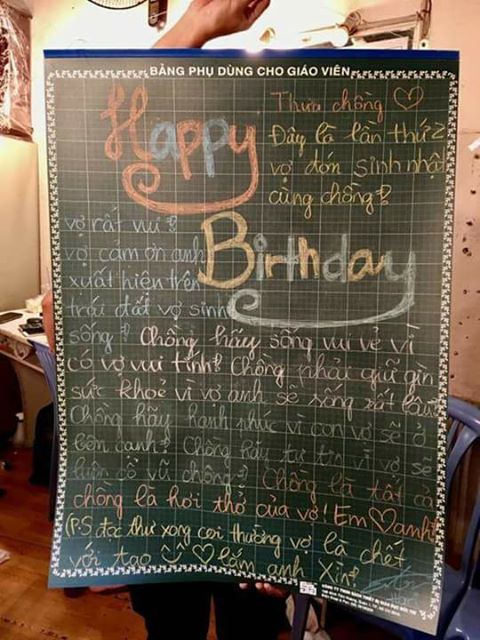 BẢNG PHỤ DÙNG CHO GIÁO VIÊN
Happy
Birthday
Thưa chồng ♡
Đây là lần thứ 2
vợ đón sinh nhật
cùng chồng?
vợ rất vui?
vợ cảm ơn anh
xuất hiện trên
trái đất vợ sinh
sống? Chồng hãy sống vui vẻ vì
có vợ vui tính? Chồng phải giữ gìn
sức khoẻ vì vợ anh sẽ sống rất lâu?
Chồng hãy hạnh phúc vì con vợ sẽ ở
bên cạnh? Chồng hãy tự tin vì vợ sẽ
luôn cổ vũ chồng? Chồng là tất cả
chồng là hơi thở của vợ! Em ♡ anh?
(P.S đọc thư xong coi thường vợ là chết
với tao ♡ lắm anh Xin?